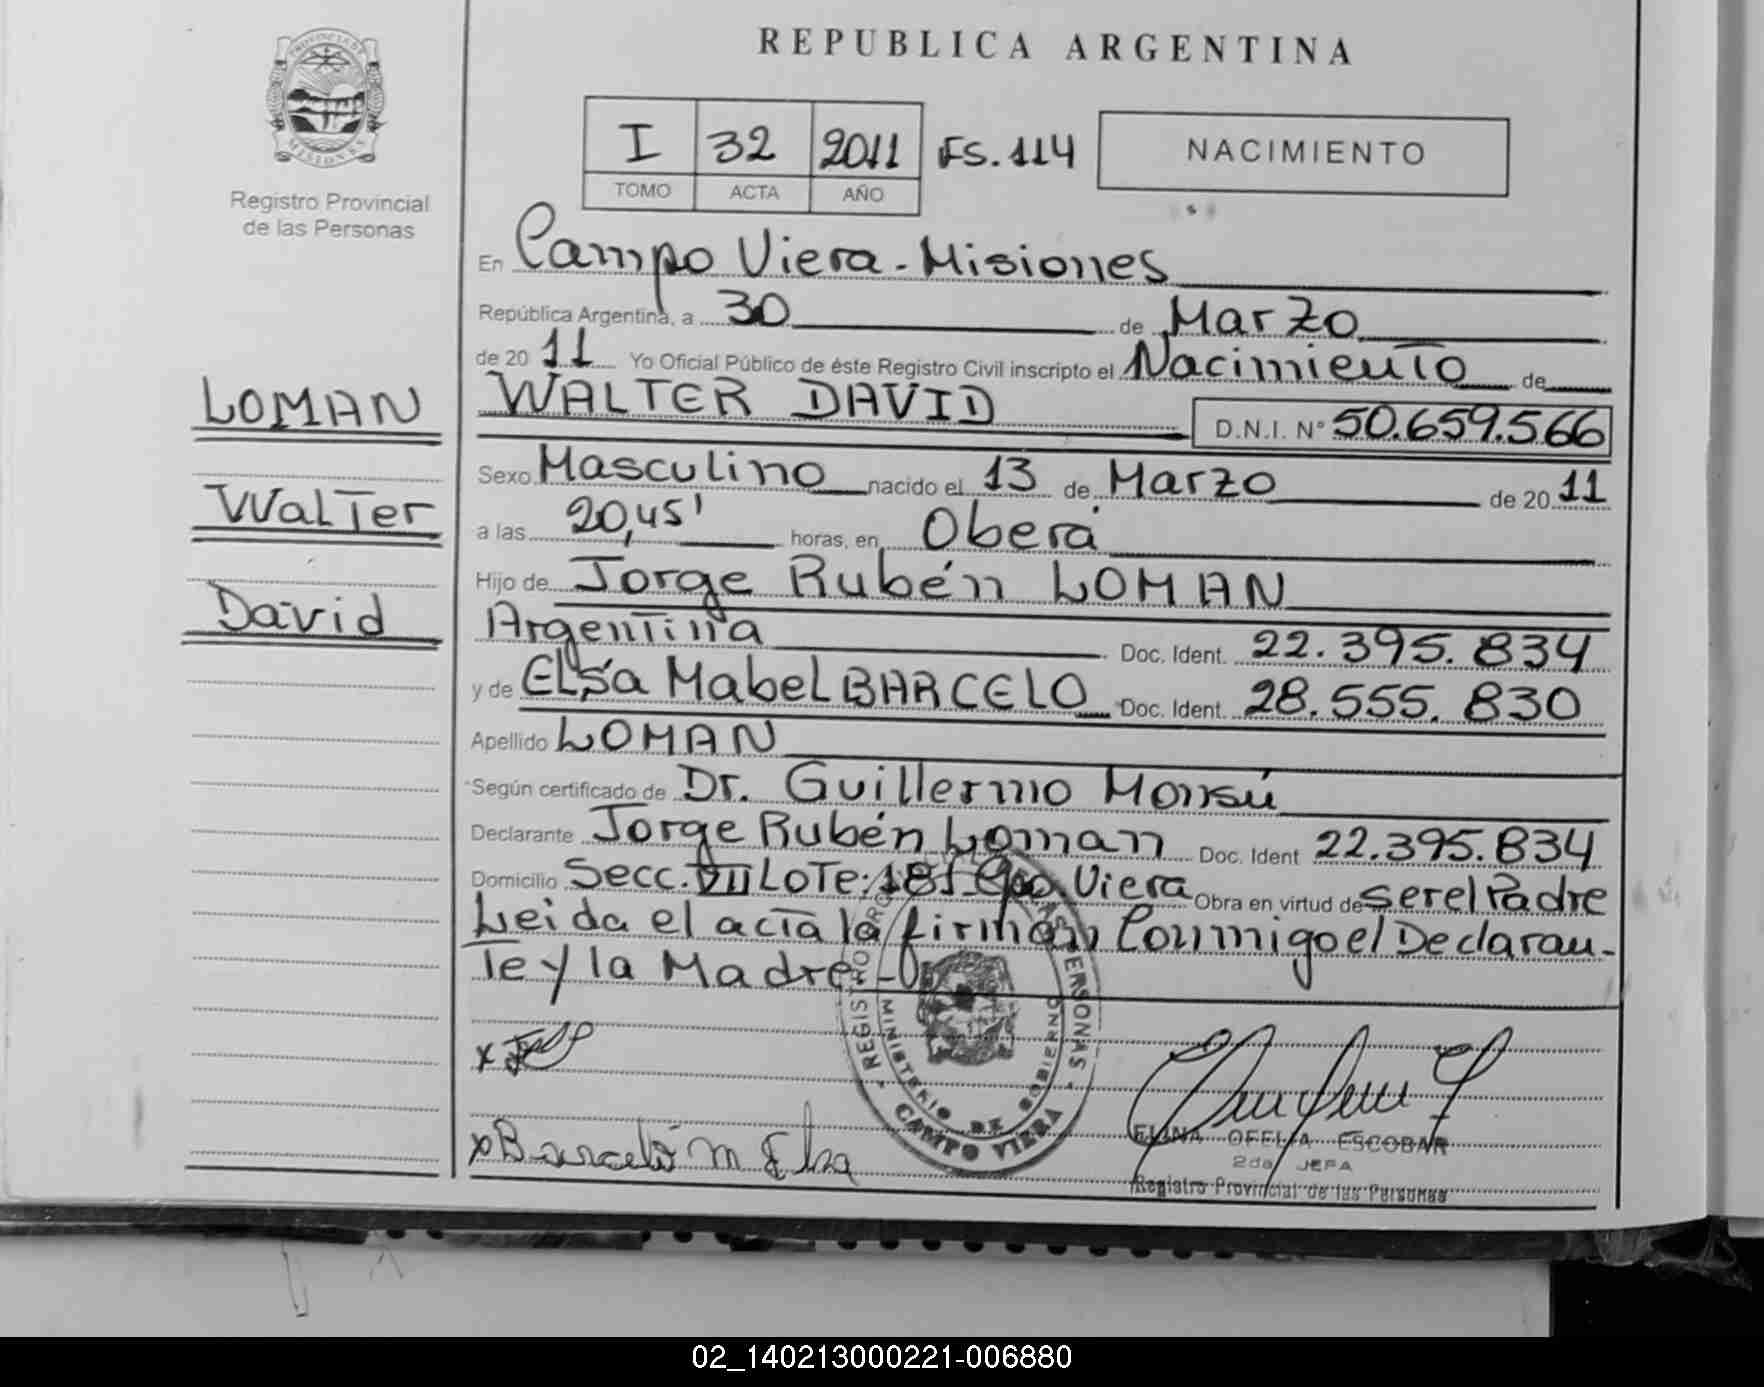 REPUBLICA ARGENTINA
PROVINCIA DE MISIONES
Registro Provincial
de las Personas
I 32 2011 FS. 114
TOMO ACTA AÑO
NACIMIENTO
En Campo Viera - Misiones
República Argentina, a 30 de Marzo
de 2011 Yo Oficial Público de éste Registro Civil inscripto el Nacimiento de
WALTER DAVID D.N.I. N° 50.659.566
LOMAN
Walter
David
Sexo Masculino nacido el 13 de Marzo de 2011
a las 20,45' horas, en Oberá
Hijo de Jorge Rubén LOMAN
Argentina Doc. Ident. 22.395.834
y de Elsa Mabel BARCELO Doc. Ident. 28.555.830
Apellido LOMAN
Según certificado de Dr. Guillermo Monsú
Declarante Jorge Rubén Loman Doc. Ident 22.395.834
Domicilio Secc. VII Lote: 181 Cpo. Viera Obra en virtud de ser el Padre
Leida el acta la firman Conmigo el Declaran-
te y la Madre
x
x Barceló M Elsa
REGISTRO PERSONAS
MINISTERIO DE GOBIERNO
CAMPO VIERA
ELINA OFELIA ESCOBAR
2da JEFA
Registro Provincial de las Personas
02_140213000221-006880